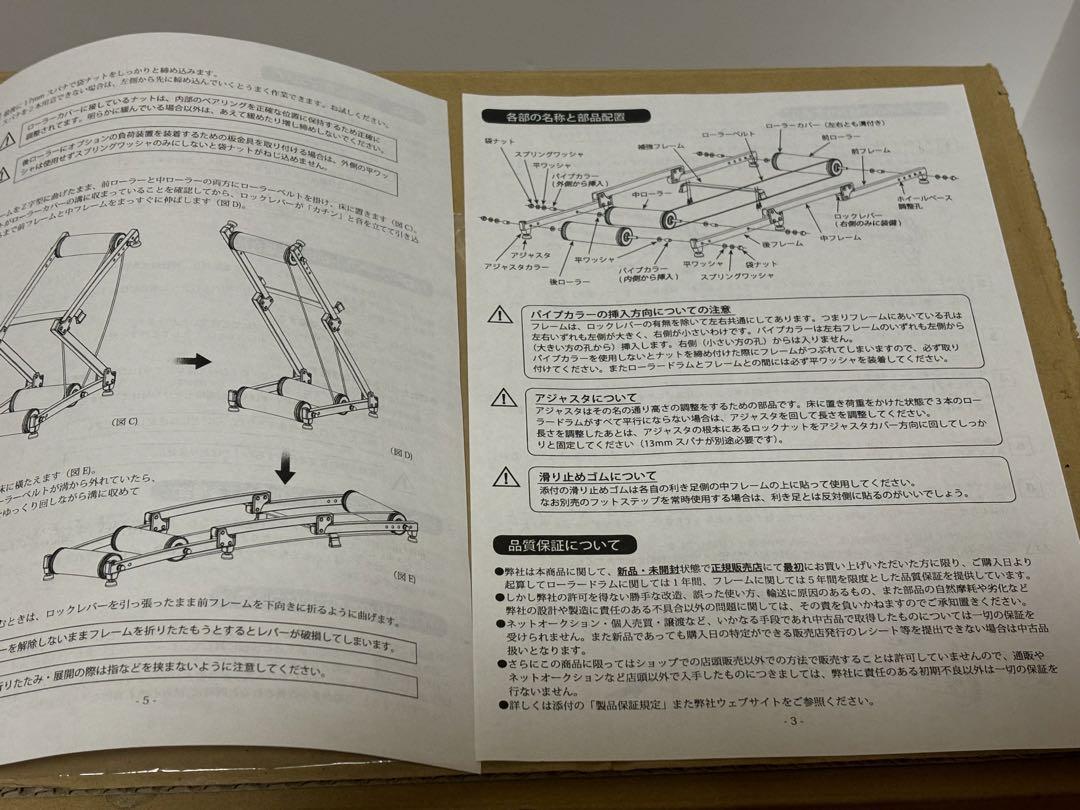 最後に17mmスパナで袋ナットをしっかりと締め込みます。
スパナを2本用意できない場合は、左側から先に締め込んでいくとうまく作業できます。お試しください。
ローラーカバーに接しているナットは、内部のベアリングを正確な位置に保持するため正確に
調整されてます。明らかに緩んでいる場合以外は、あえて緩めたり増し締めしないでください。
後ローラーにオプションの負荷装置を装着するための板金具を取り付ける場合は、外側の平ワッ
シャは使用せずスプリングワッシャのみにしないと袋ナットがねじ込めません。
ームをZ字型に曲げたまま、前ローラーと中ローラーの両方にローラーベルトを掛け、床に置きます(図C)。
がローラーカバーの溝に収まっていることを確認してから、ロックレバーが「カチン」と音を立てて引き込
まで前フレームと中フレームをまっすぐに伸ばします(図D)。
(図C)
(図D)
床に横たえます(図E)。
ーラーベルトが溝から外れていたら、
ーゆっくり回しながら溝に収めて
(図E)
むときは、ロックレバーを引っ張ったまま前フレームを下向きに折るように曲げます。
ーを解除しないままフレームを折りたたもうとするとレバーが破損してしまいます。
折りたたみ・展開の際は指などを挟まないように注意してください。
- 5 -
各部の名称と部品配置
袋ナット
スプリングワッシャ
平ワッシャ
パイプカラー
(外側から挿入)
中ローラー
補強フレーム
ローラーベルト
ローラーカバー(左右とも溝付き)
前ローラー
前フレーム
ホイールベース
調整孔
ロックレバー
(右側のみに装備)
中フレーム
後フレーム
袋ナット
スプリングワッシャ
平ワッシャ
パイプカラー
(内側から挿入)
平ワッシャ
後ローラー
アジャスタ
アジャスタカラー
パイプカラーの挿入方向についての注意
フレームは、ロックレバーの有無を除いて左右共通にしてあります。つまりフレームにあいている孔は
左右いずれも左側が大きく、右側が小さいわけです。パイプカラーは左右フレームのいずれも左側から
(大きい方の孔から)挿入します。右側(小さい方の孔)からは入りません。
パイプカラーを使用しないとナットを締め付けた際にフレームがつぶれてしまいますので、必ず取り
付けてください。またローラードラムとフレームとの間には必ず平ワッシャを装着してください。
アジャスタについて
アジャスタはその名の通り高さの調整をするための部品です。床に置き荷重をかけた状態で3本のロー
ラードラムがすべて平行にならない場合は、アジャスタを回して長さを調整してください。
長さを調整したあとは、アジャスタの根本にあるロックナットをアジャスタカバー方向に回してしっか
りと固定してください(13mmスパナが別途必要です)。
滑り止めゴムについて
添付の滑り止めゴムは各自の利き足側の中フレームの上に貼って使用してください。
なお別売のフットステップを常時使用する場合は、利き足とは反対側に貼るのがいいでしょう。
品質保証について
●弊社は本商品に関して、新品・未開封状態で正規販売店にて最初にお買い上げいただいた方に限り、ご購入日より
起算してローラードラムに関しては1年間、フレームに関しては5年間を限度とした品質保証を提供しています。
●しかし弊社の許可を得ない勝手な改造、誤った使い方、輸送に原因のあるもの、また部品の自然摩耗や劣化など
弊社の設計や製造に責任のある不具合以外の問題に関しては、その責を負いかねますのでご承知置きください。
●ネットオークション・個人売買・譲渡など、いかなる手段であれ中古品で取得したものについては一切の保証を
受けられません。また新品であっても購入日の特定ができる販売店発行のレシート等を提出できない場合は中古品
扱いとなります。
●さらにこの商品に限ってはショップでの店頭販売以外での方法で販売することは許可していませんので、通販や
ネットオークションなど店頭以外で入手したものにつきましては、弊社に責任のある初期不良以外は一切の保証を
行ないません。
●詳しくは添付の「製品保証規定」また弊社ウェブサイトをご参照ください。
- 3 -